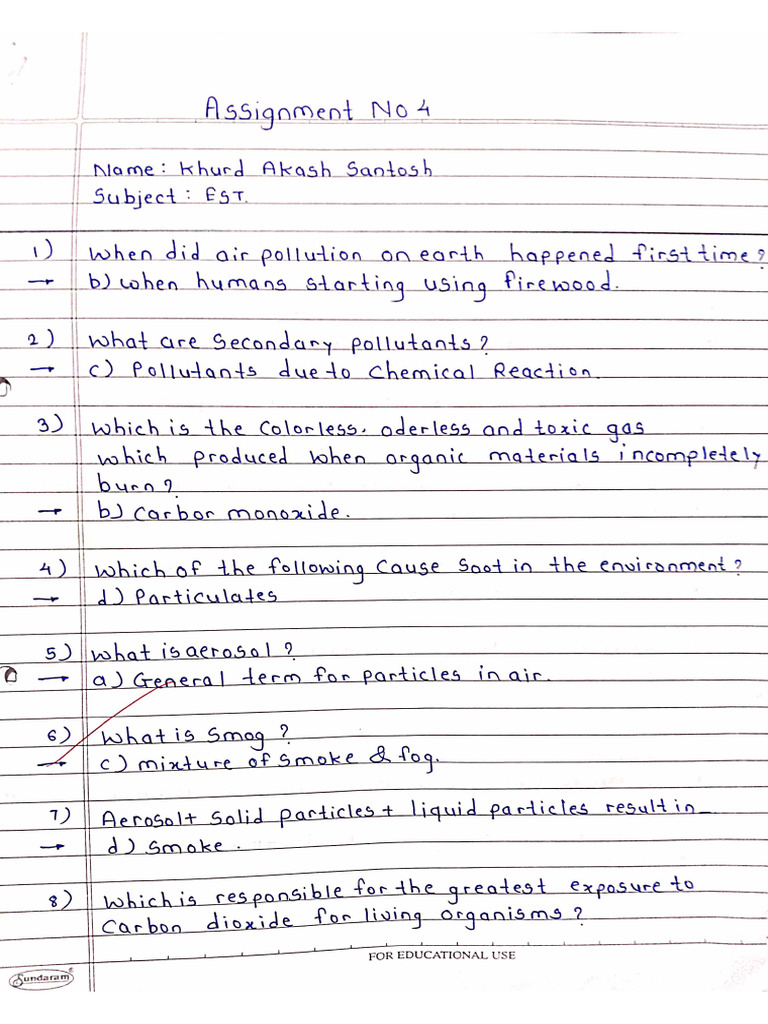 Assignment No 4
Name: Khurd Akash Santosh
Subject: EST.
1) When did air pollution on earth happened first time?
→ b) when humans starting using firewood.
2) What are Secondary pollutants?
→ c) Pollutants due to Chemical Reaction.
3) Which is the Colorless, oderless and toxic gas
which produced when organic materials incompletely
burn?
→ b) Carbon monoxide.
4) Which of the following Cause Soot in the environment?
→ d) Particulates
5) What is aerosol?
→ a) General term for particles in air.
6) What is Smog?
→ c) mixture of smoke & fog.
7) Aerosol+ Solid particles + liquid particles result in_
→ d) Smoke.
8) Which is responsible for the greatest exposure to
Carbon dioxide for living organisms?
FOR EDUCATIONAL USE
Sundaram